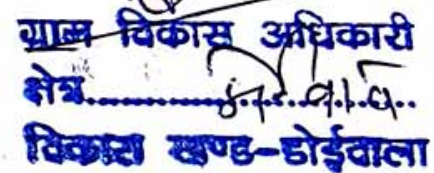 ग्राम विकास अधिकारी
क्षेत्र..............................
विकास खण्ड-डोईवाला